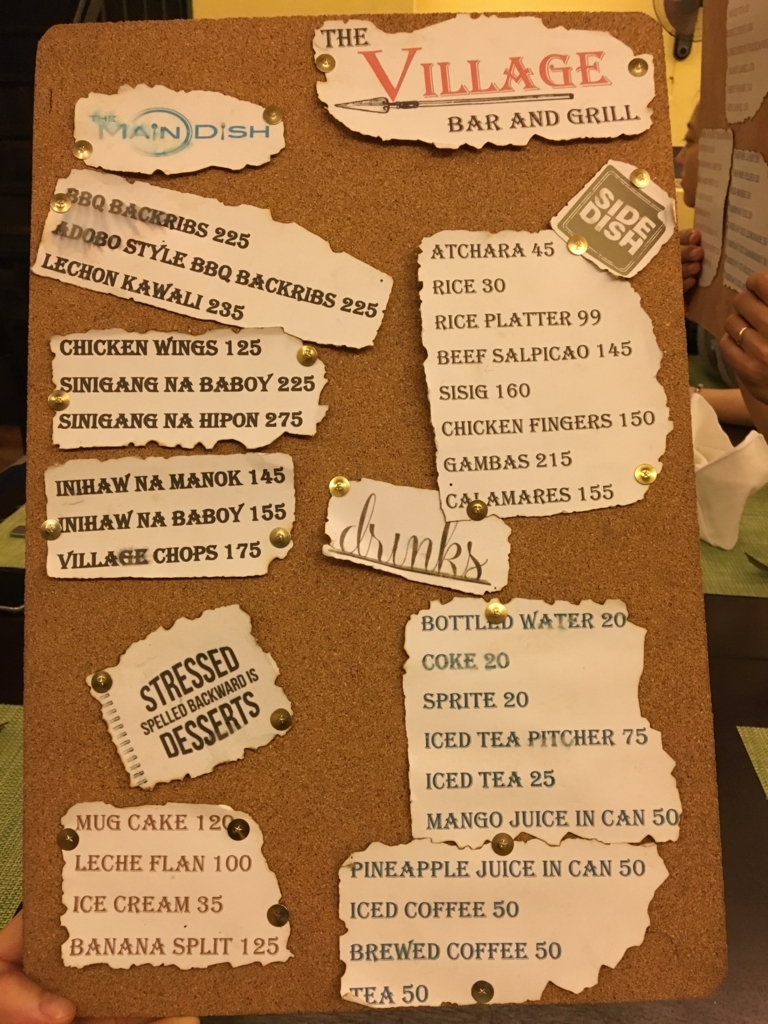 THE
VILLAGE
BAR AND GRILL
THE
MAIN DISH
BBQ BACKRIBS 225
ADOBO STYLE BBQ BACKRIBS 225
LECHON KAWALI 235
CHICKEN WINGS 125
SINIGANG NA BABOY 225
SINIGANG NA HIPON 275
INIHAW NA MANOK 145
INIHAW NA BABOY 155
VILLAGE CHOPS 175
SIDE
DISH
ATCHARA 45
RICE 30
RICE PLATTER 99
BEEF SALPICAO 145
SISIG 160
CHICKEN FINGERS 150
GAMBAS 215
CALAMARES 155
drinks
BOTTLED WATER 20
COKE 20
SPRITE 20
ICED TEA PITCHER 75
ICED TEA 25
MANGO JUICE IN CAN 50
PINEAPPLE JUICE IN CAN 50
ICED COFFEE 50
BREWED COFFEE 50
TEA 50
STRESSED
SPELLED BACKWARD IS
DESSERTS
MUG CAKE 120
LECHE FLAN 100
ICE CREAM 35
BANANA SPLIT 125